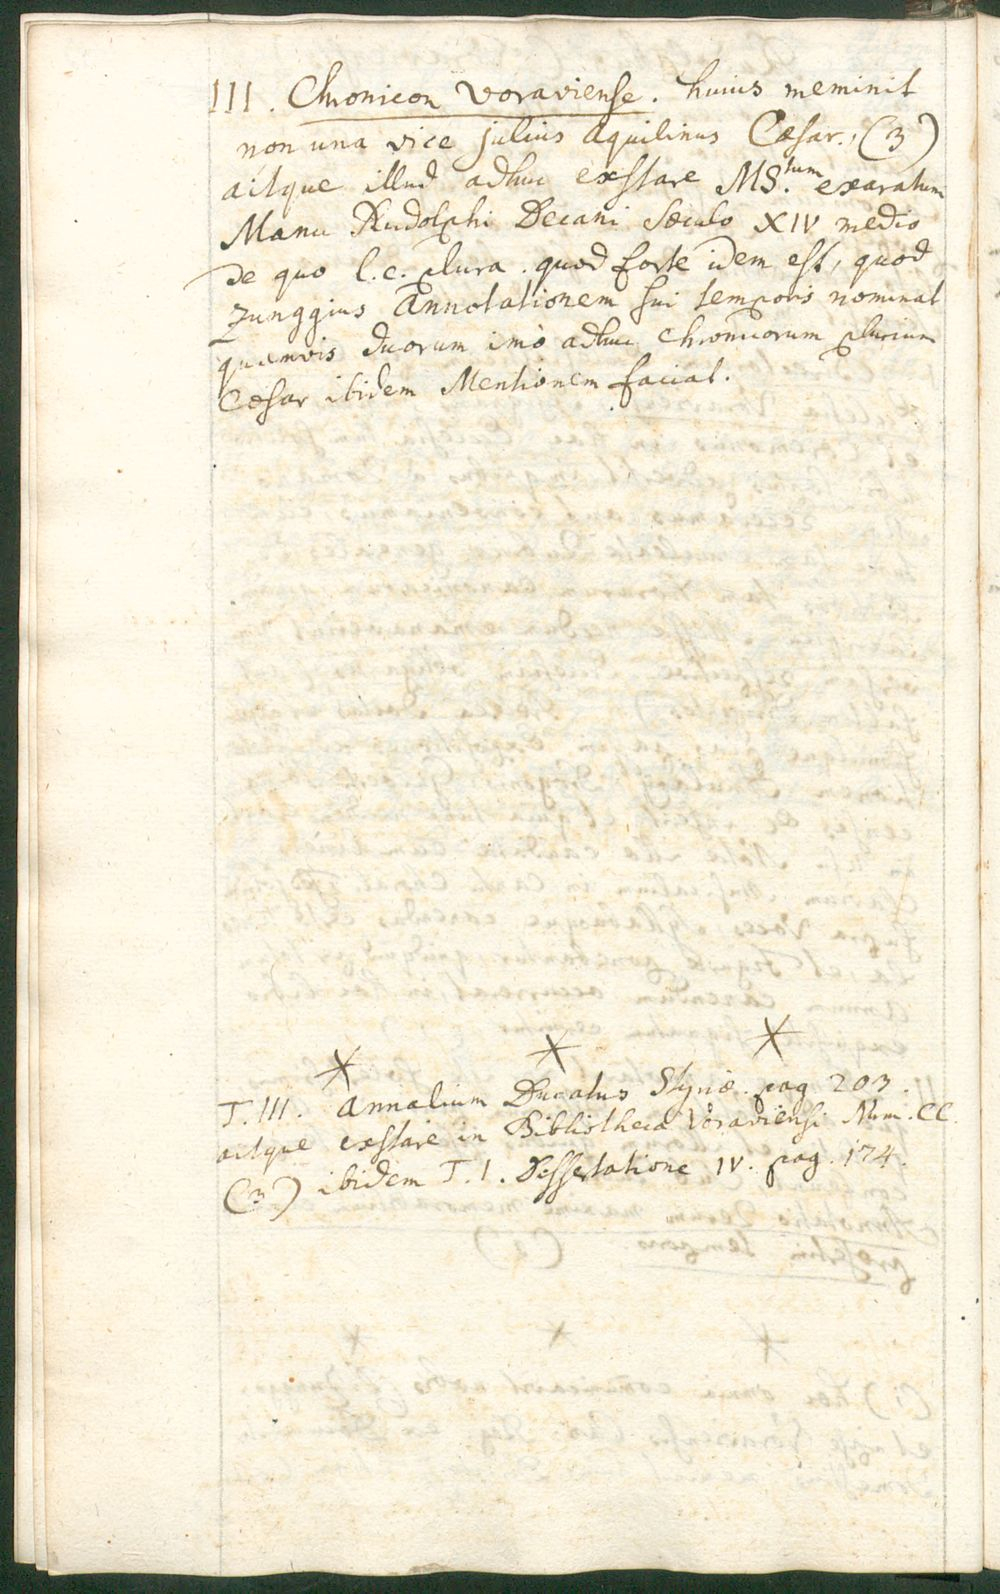 III. Chronicon Voraviense. huius meminit
non una vice julius Aquilinus Cæsar. (3)
aitque illud adhuc exstare MS.tum exaratum
Manu Rudolphi Decani Sæculo XIV medio
de quo l.c. plura. quod forte idem est, quod
Zunggius Annotationem sui temporis nominat
quamvis duorum imò adhuc Chronicorum plurium
Cæsar ibidem Mentionem faciat.
* * *
T. III. Annalium Ducatus Styriæ. pag 203.
aitque exstare in Bibliotheca Voraviensi Num. CC
(3) ibidem T. I. Dissertatione IV. pag. 174.